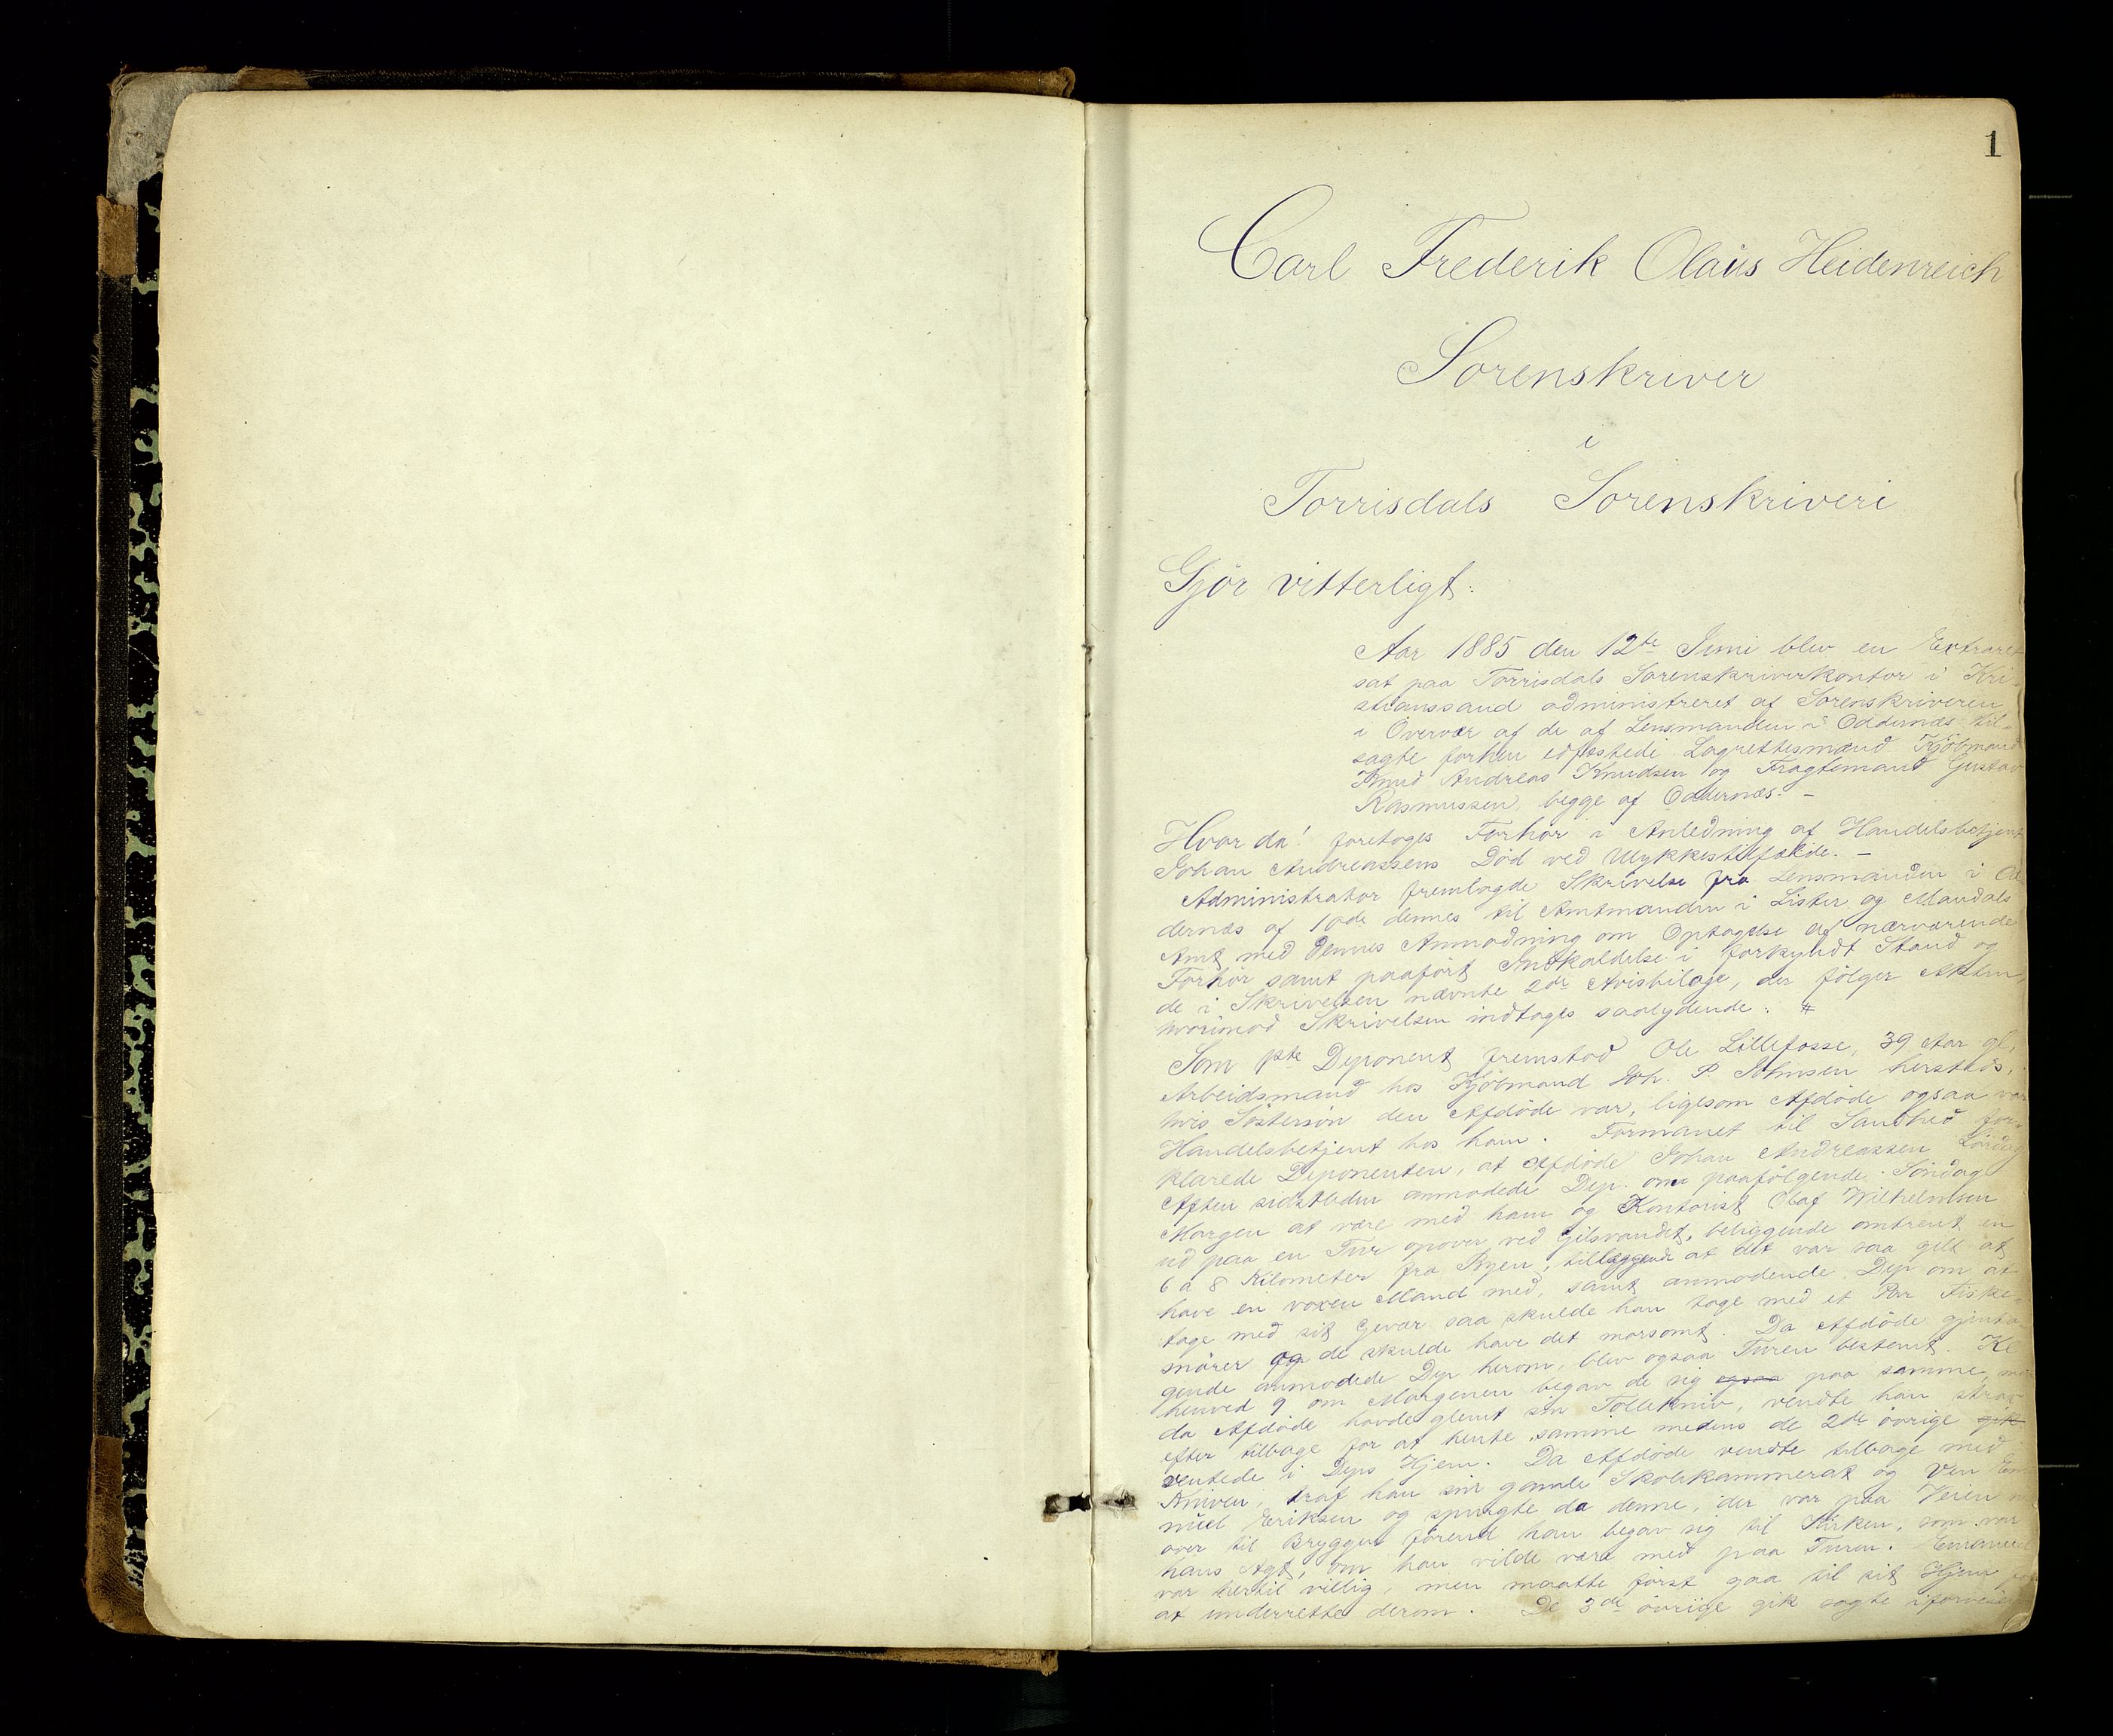 1
Carl Frederik Olaus Heidenreich
Sorenskriver
i
Torrisdals Sorenskriveri
Gjör vitterligt:
Aar 1885 den 12te Juni blev en Extraret
sat paa Torrisdals Sorenskriverkontor i Kri-
stianssand administreret af Sorenskriveren
i Overvær af de af Lensmanden i Oddernæs til-
sagte forhen edfæstede Lagrettesmænd Kjöbmand
Knud Andreas Knudsen og Fragtemand Gustav
Rasmussen, begge af Oddernæs. -
Hvor da! foretoges Forhör i Anledning af Handelsbetjent
Johan Andreassens Död ved Ulykkestilfælde. -
Administrator fremlagde Skrivelse fra Lensmanden i Od-
dernæs af 10de dennes til Amtmanden i Lister og Mandals
Amt med dennes Anmodning om Optagelse af nærværende
Forhör samt paafört Indkaldelse i forkyndt Stand og
de i Skrivelsen nævnte 2de Avisbilage, der fölger Akten,
hvorimod Skrivelsen indtages saalydende: #
Som 1ste Deponent fremstod Ole Lillefosse, 39 Aar gl,
Arbeidsmand hos Kjöbmand Joh. P. Johnsen hersteds,
hvis Söstersön den Afdöde var, ligesom Afdöde ogsaa var
Handelsbetjent hos ham. Formanet til Sandhed for-
klarede Deponenten, at Afdöde Johan Andreassen Lördag
Aften sidstleden anmodede Dep. om paafölgende Söndag
Morgen at være med ham og Kontorist Olaf Wilhelmsen
ud paa en Tur opover ved Gilsvandet, beliggende omtrent en
6 a 8 Kilometer fra Byen, tillæggende at det var saa gilt at
have en voxen Mand med, samt anmodende Dep om at
tage med sit Gevær saa skulde han tage med et Par Fiske-
snörer og de skulde have det morsomt. Da Afdöde gjenta-
gende anmodede Dep herom, blev ogsaa Turen bestemt. Kl
henved 9 om Morgenen begav de sig ogsaa paa samme,
da Afdöde havde glemt sin Tollekniv, vendte han strax
efter tilbage for at hente samme medens de 2de övrige gik
ventede i Deps Hjem. Da Afdöde vendte tilbage med
Kniven, traf han sin gamle Skolekammerat og Ven Ema-
nuel Eriksen og spurgte da denne, der var paa Veien
over til Bryggen förend han begav sig til Kirken, som var
hans Agt, om han vilde være med paa Turen. Emanuel
var hertil villig, men maatte först gaa til sit Hjem
at underrette derom. De 3de övrige gik sagte iforveien